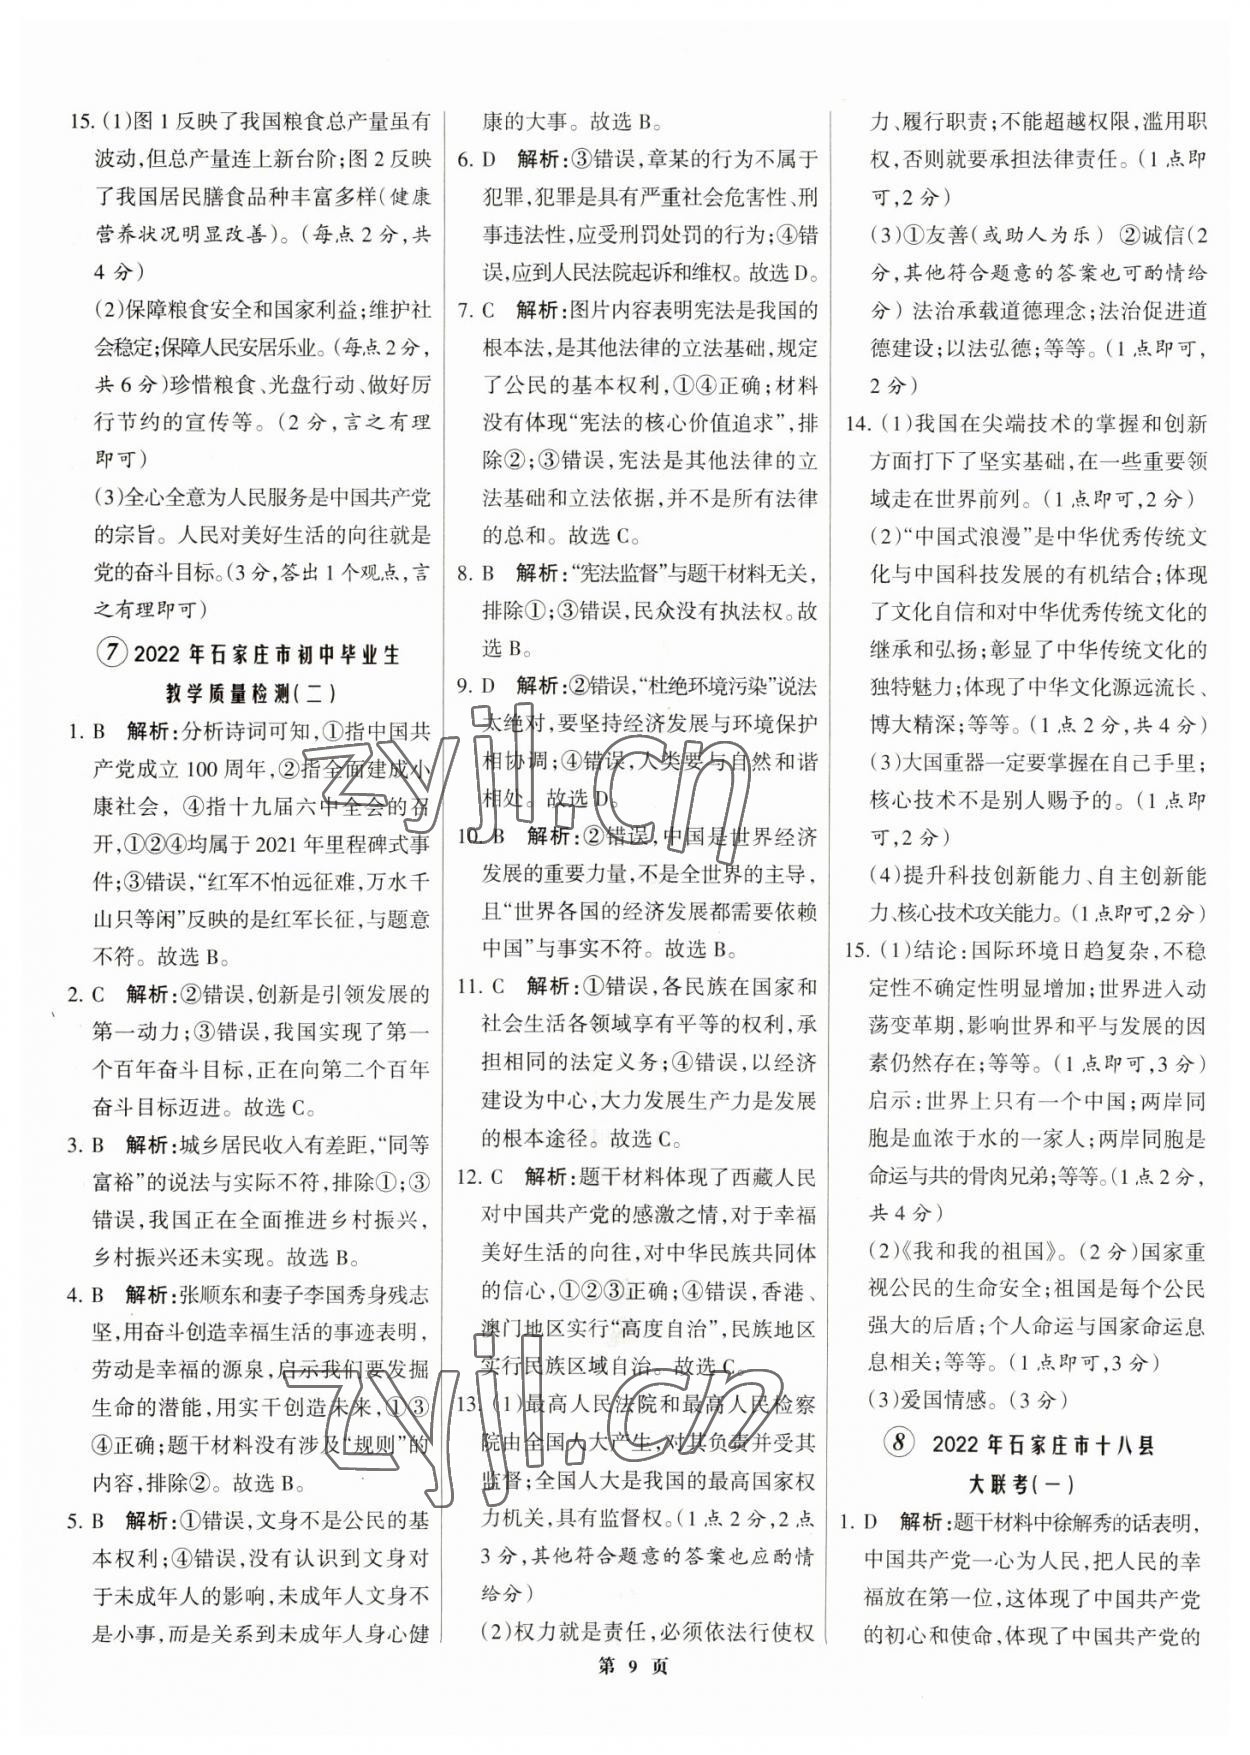 15. (1)图 1 反映了我国粮食总产量虽有
波动,但总产量连上新台阶;图 2 反映
了我国居民膳食品种丰富多样(健康
营养状况明显改善)。(每点 2 分,共
4 分)
(2)保障粮食安全和国家利益;维护社
会稳定;保障人民安居乐业。(每点 2 分,
共 6 分)珍惜粮食、光盘行动、做好厉
行节约的宣传等。(2 分,言之有理
即可)
(3)全心全意为人民服务是中国共产党
的宗旨。人民对美好生活的向往就是
党的奋斗目标。(3 分,答出 1 个观点,言
之有理即可)
⑦ 2022 年石家庄市初中毕业生
教学质量检测(二)
1. B 解析:分析诗词可知,①指中国共
产党成立 100 周年,②指全面建成小
康社会,④指十九届六中全会的召
开,①②④均属于 2021 年里程碑式事
件;③错误,“红军不怕远征难,万水千
山只等闲”反映的是红军长征,与题意
不符。故选 B。
2. C 解析:②错误,创新是引领发展的
第一动力;③错误,我国实现了第一
个百年奋斗目标,正在向第二个百年
奋斗目标迈进。故选 C。
3. B 解析:城乡居民收入有差距,“同等
富裕”的说法与实际不符,排除①;③
错误,我国正在全面推进乡村振兴,
乡村振兴还未实现。故选 B。
4. B 解析:张顺东和妻子李国秀身残志
坚,用奋斗创造幸福生活的事迹表明,
劳动是幸福的源泉,启示我们要发掘
生命的潜能,用实干创造未来,①③
④正确;题干材料没有涉及“规则”的
内容,排除②。故选 B。
5. B 解析:①错误,文身不是公民的基
本权利;④错误,没有认识到文身对
于未成年人的影响,未成年人文身不
是小事,而是关系到未成年人身心健
康的大事。故选 B。
6. D 解析:③错误,章某的行为不属于
犯罪,犯罪是具有严重社会危害性、刑
事违法性,应受刑罚处罚的行为;④错
误,应到人民法院起诉和维权。故选 D。
7. C 解析:图片内容表明宪法是我国的
根本法,是其他法律的立法基础,规定
了公民的基本权利,①④正确;材料
没有体现“宪法的核心价值追求”,排
除②;③错误,宪法是其他法律的立
法基础和立法依据,并不是所有法律
的总和。故选 C。
8. B 解析:“宪法监督”与题干材料无关,
排除①;③错误,民众没有执法权。故
选 B。
9. D 解析:②错误,“杜绝环境污染”说法
太绝对,要坚持经济发展与环境保护
相协调;④错误,人类要与自然和谐
相处。故选 D。
10. B 解析:②错误,中国是世界经济
发展的重要力量,不是全世界的主导,
且“世界各国的经济发展都需要依赖
中国”与事实不符。故选 B。
11. C 解析:①错误,各民族在国家和
社会生活各领域享有平等的权利,承
担相同的法定义务;④错误,以经济
建设为中心,大力发展生产力是发展
的根本途径。故选 C。
12. C 解析:题干材料体现了西藏人民
对中国共产党的感激之情,对于幸福
美好生活的向往,对中华民族共同体
的信心,①②③正确;④错误,香港、
澳门地区实行“高度自治”,民族地区
实行民族区域自治。故选 C。
13. (1)最高人民法院和最高人民检察
院由全国人大产生,对其负责并受其
监督;全国人大是我国的最高国家权
力机关,具有监督权。(1 点 2 分,2 点
3 分,其他符合题意的答案也应酌情
给分)
(2)权力就是责任,必须依法行使权
力、履行职责;不能超越权限,滥用职
权,否则就要承担法律责任。(1 点即
可,2 分)
(3)①友善(或助人为乐) ②诚信(2
分,其他符合题意的答案也可酌情给
分)法治承载道德理念;法治促进道
德建设;以法弘德;等等。(1 点即可,
2 分)
14. (1)我国在尖端技术的掌握和创新
方面打下了坚实基础,在一些重要领
域走在世界前列。(1 点即可,2 分)
(2)“中国式浪漫”是中华优秀传统文
化与中国科技发展的有机结合;体现
了文化自信和对中华优秀传统文化的
继承和弘扬;彰显了中华传统文化的
独特魅力;体现了中华文化源远流长、
博大精深;等等。(1 点 2 分,共 4 分)
(3)大国重器一定要掌握在自己手里;
核心技术不是别人赐予的。(1 点即
可,2 分)
(4)提升科技创新能力、自主创新能
力、核心技术攻关能力。(1 点即可,2 分)
15. (1)结论:国际环境日趋复杂,不稳
定性不确定性明显增加;世界进入动
荡变革期,影响世界和平与发展的因
素仍然存在;等等。(1 点即可,3 分)
启示:世界上只有一个中国;两岸同
胞是血浓于水的一家人;两岸同胞是
命运与共的骨肉兄弟;等等。(1 点 2 分,
共 4 分)
(2)《我和我的祖国》。(2 分)国家重
视公民的生命安全;祖国是每个公民
强大的后盾;个人命运与国家命运息
息相关;等等。(1 点即可,3 分)
(3)爱国情感。(3 分)
⑧ 2022 年石家庄市十八县
大联考(一)
1. D 解析:题干材料中徐解秀的话表明,
中国共产党一心为人民,把人民的幸
福放在第一位,这体现了中国共产党
的初心和使命,体现了中国共产党的
第 9 页
zyjl.cn
zyjl.cn